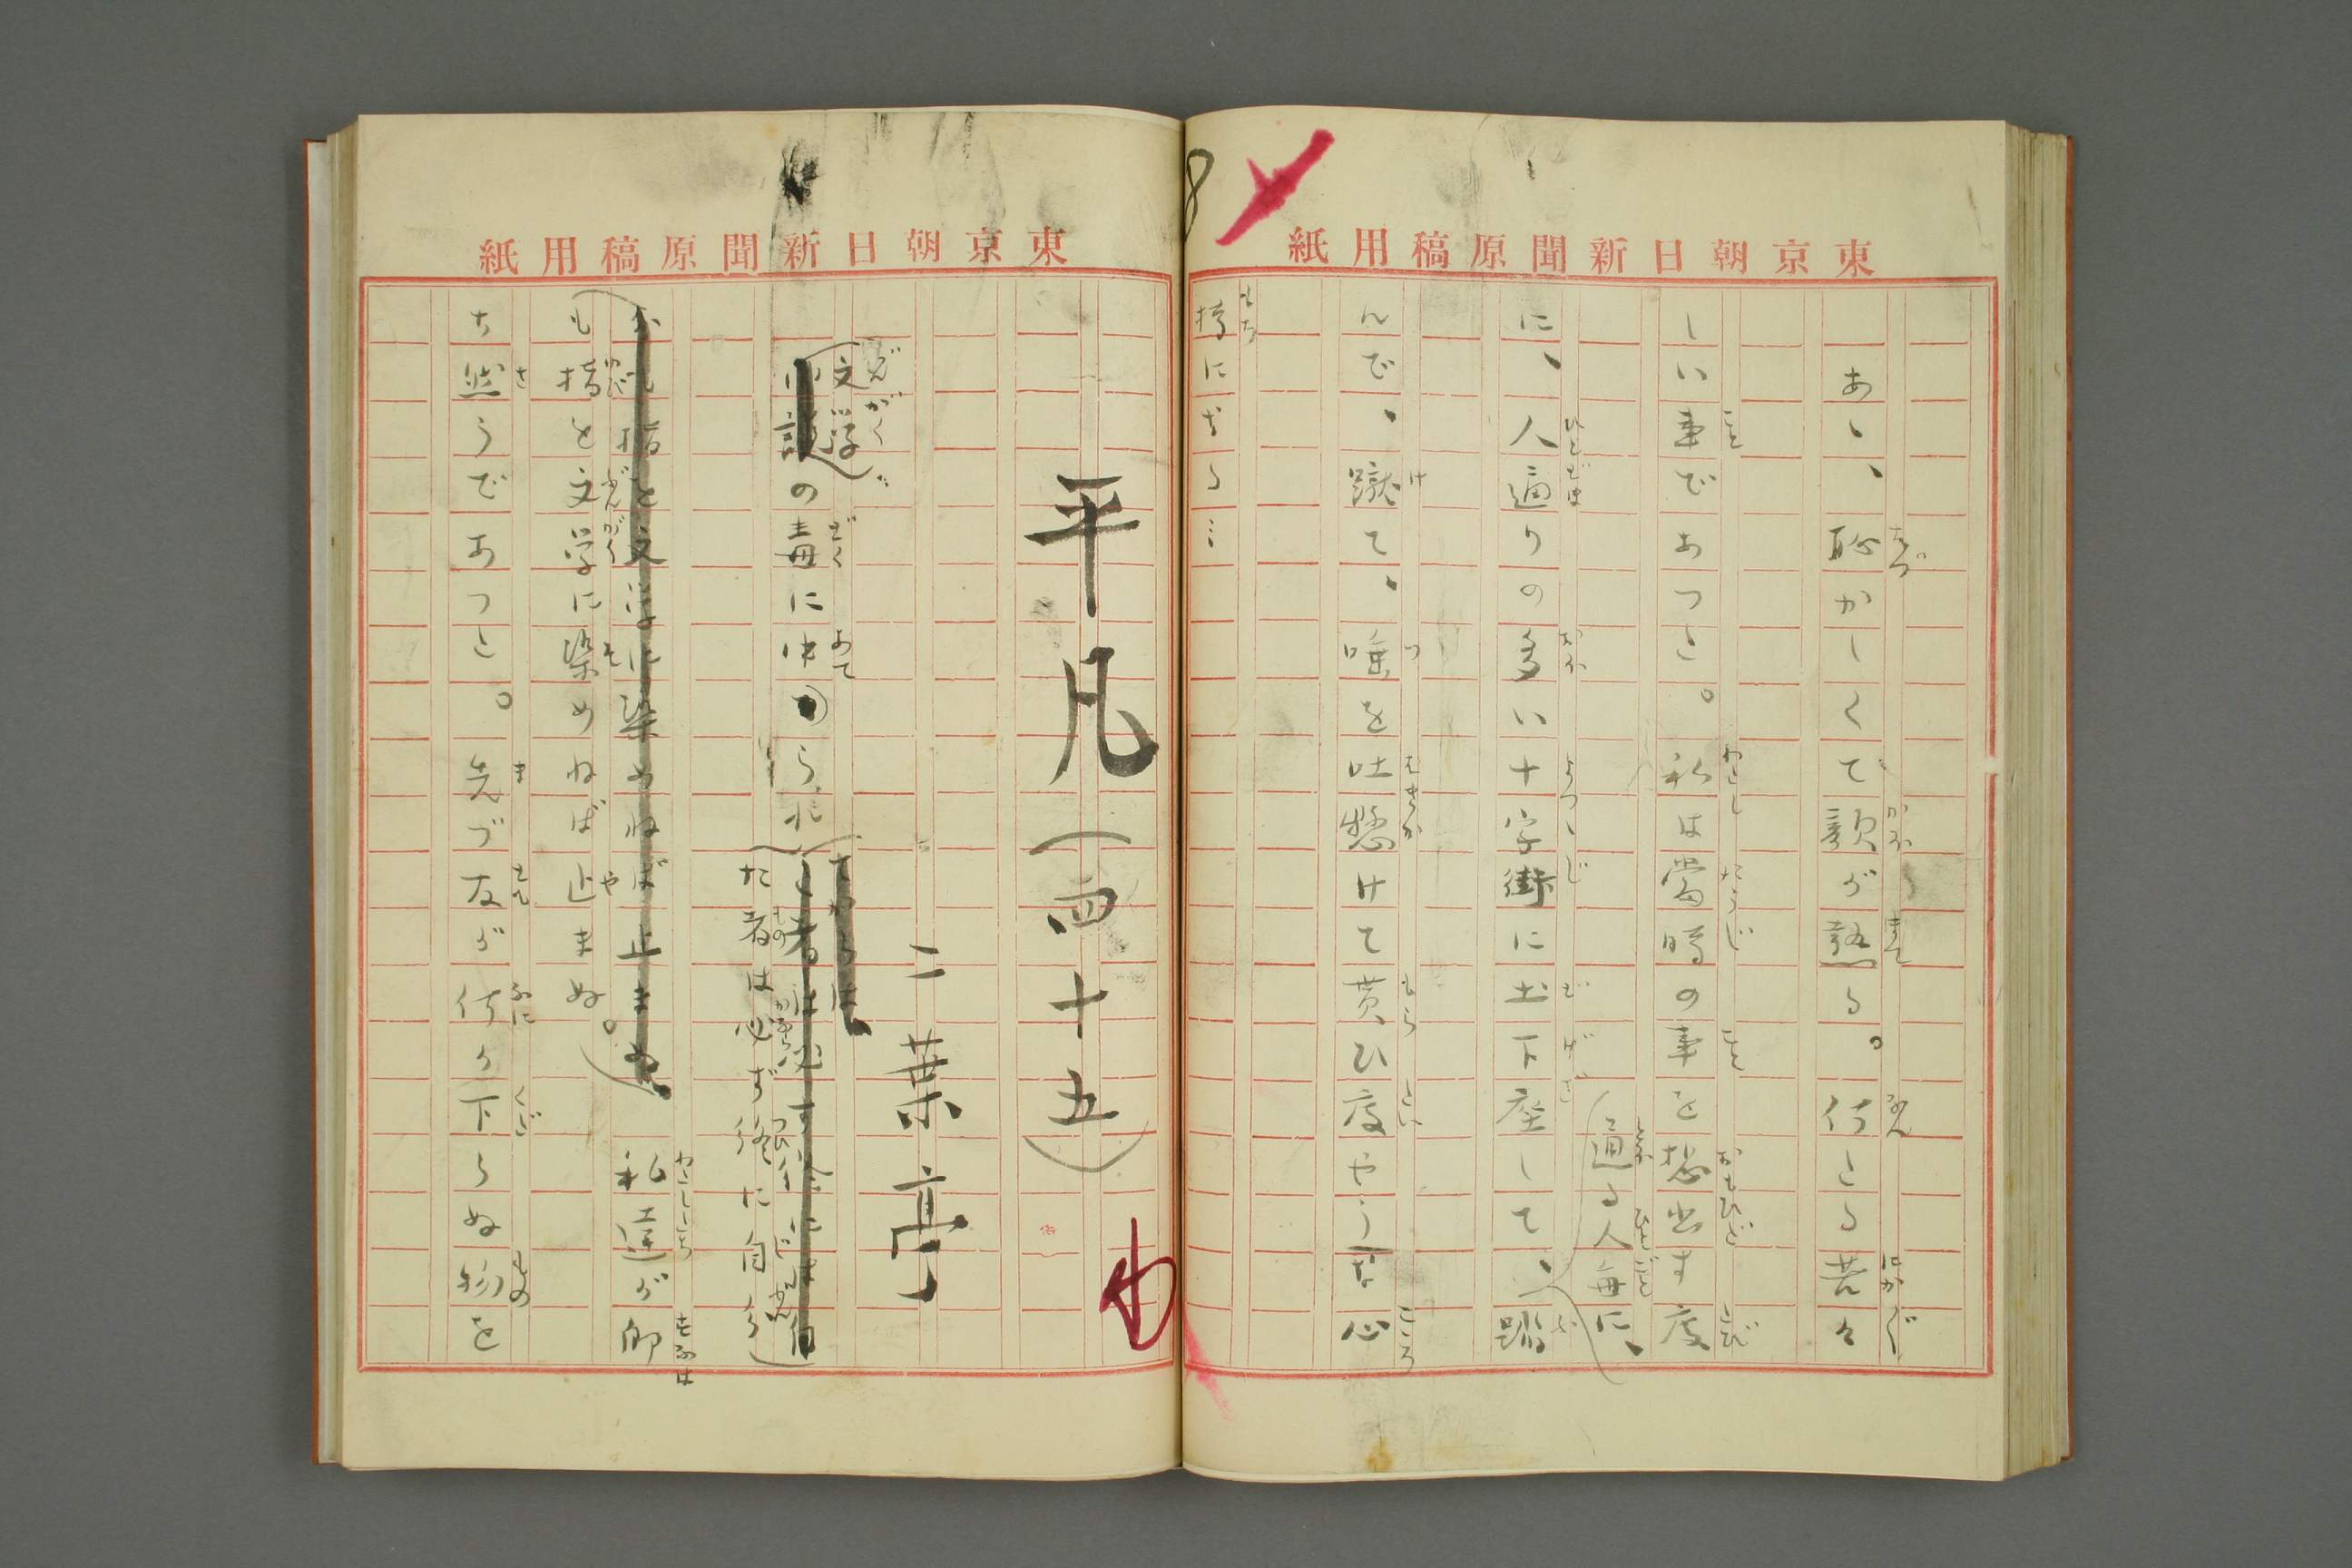 東京朝日新聞原稿用紙
あゝ、恥かしくて顔が熱る。何たる苦々
しい事であつた。私は當時の事を想出す度
に、人通りの多い十字街に土下座して、
通る人毎に、
踏
んで、蹴て、唾を吐懸けて貰ひ度やうな心
持になる…
東京朝日新聞原稿用紙
平凡(四十五)
二葉亭
文学
の毒に中られ
た者は必ず終に自分
も指を文学に染めねば止まぬ。
私達が即
ち然うであつた。先づ友が何か下らぬ物を